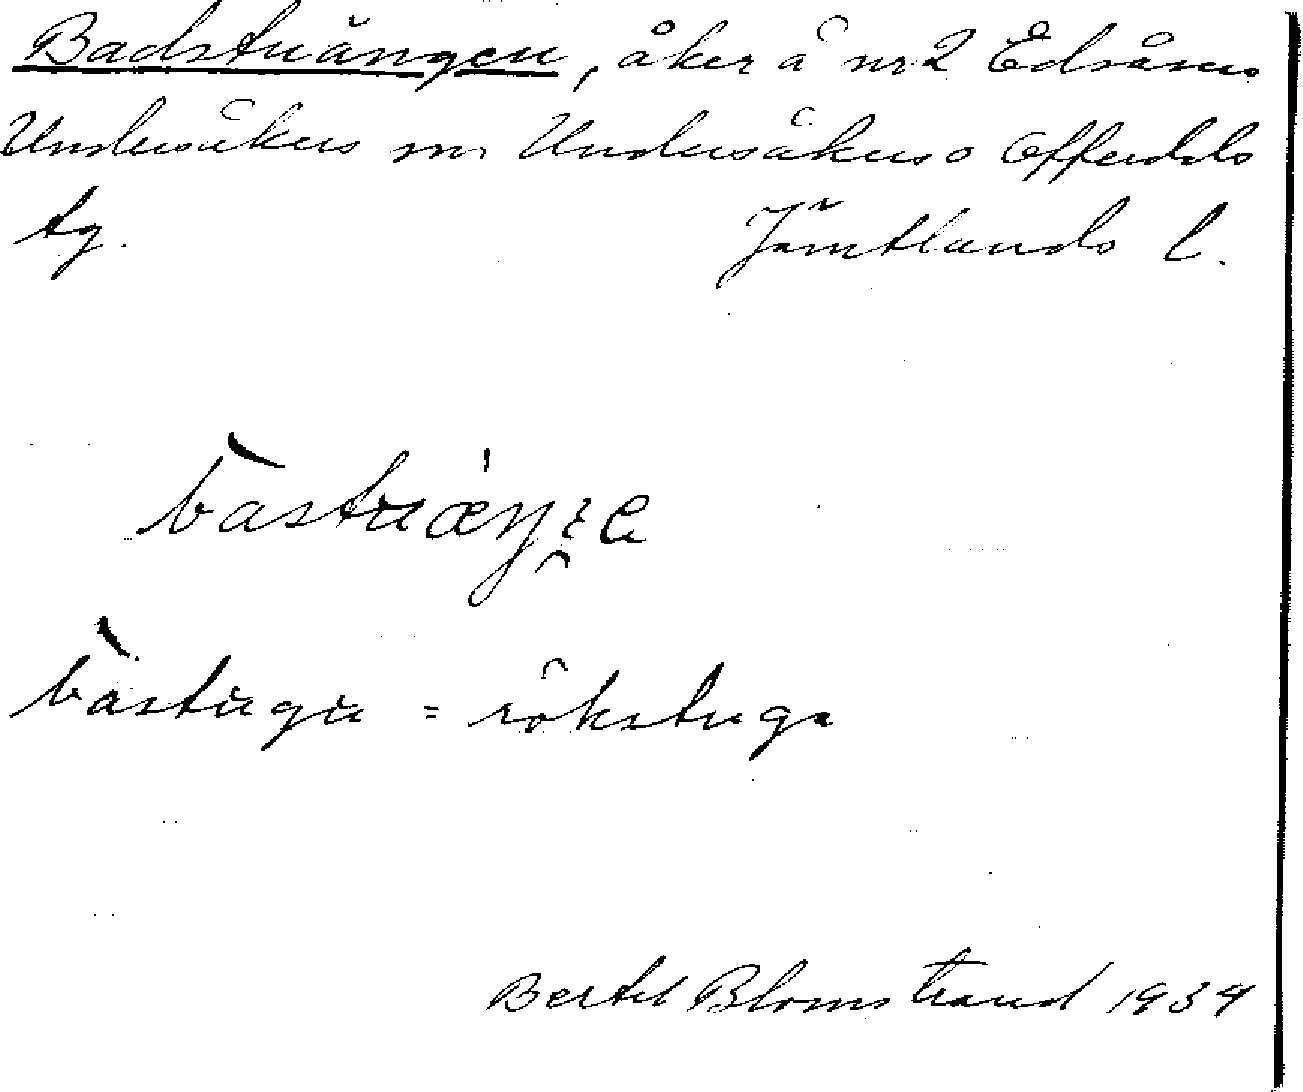 Badstuängen, åker å nr 2 Edsåsens
Undersåkers sn. Undersåkers o Offerdals
tg. Jämtlands l.
bastuæŋ
bastugu = rökstuga
Bertil Blomstrand 1939